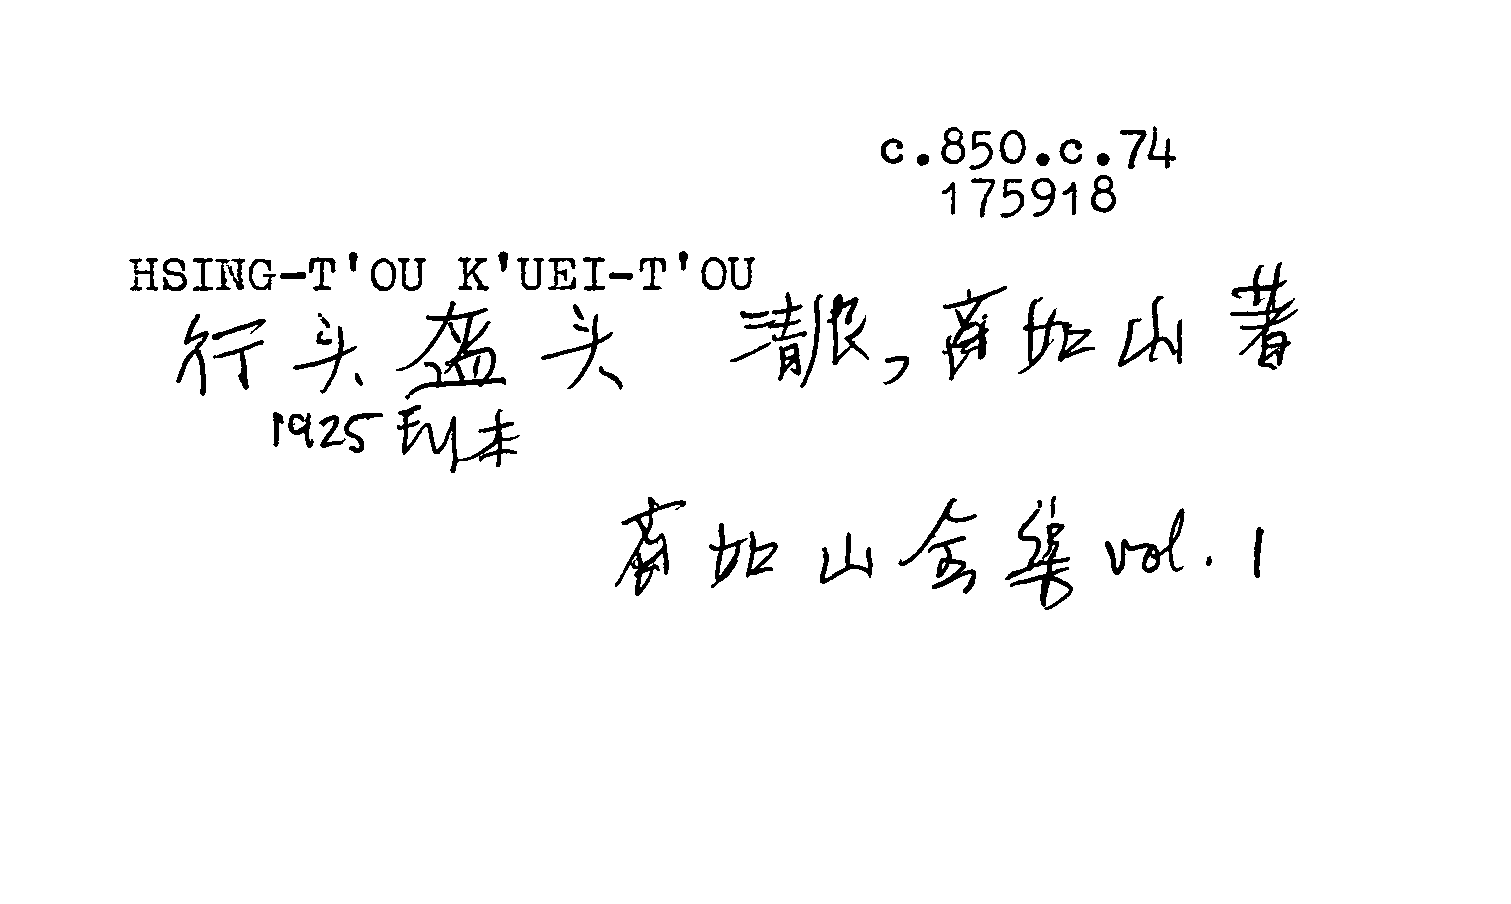 c.850.c.74
175918
HSING-T'OU K'UEI-T'OU
行头盔头 清 , 齊如山著
1925 印本
齊如山全集 vol. 1